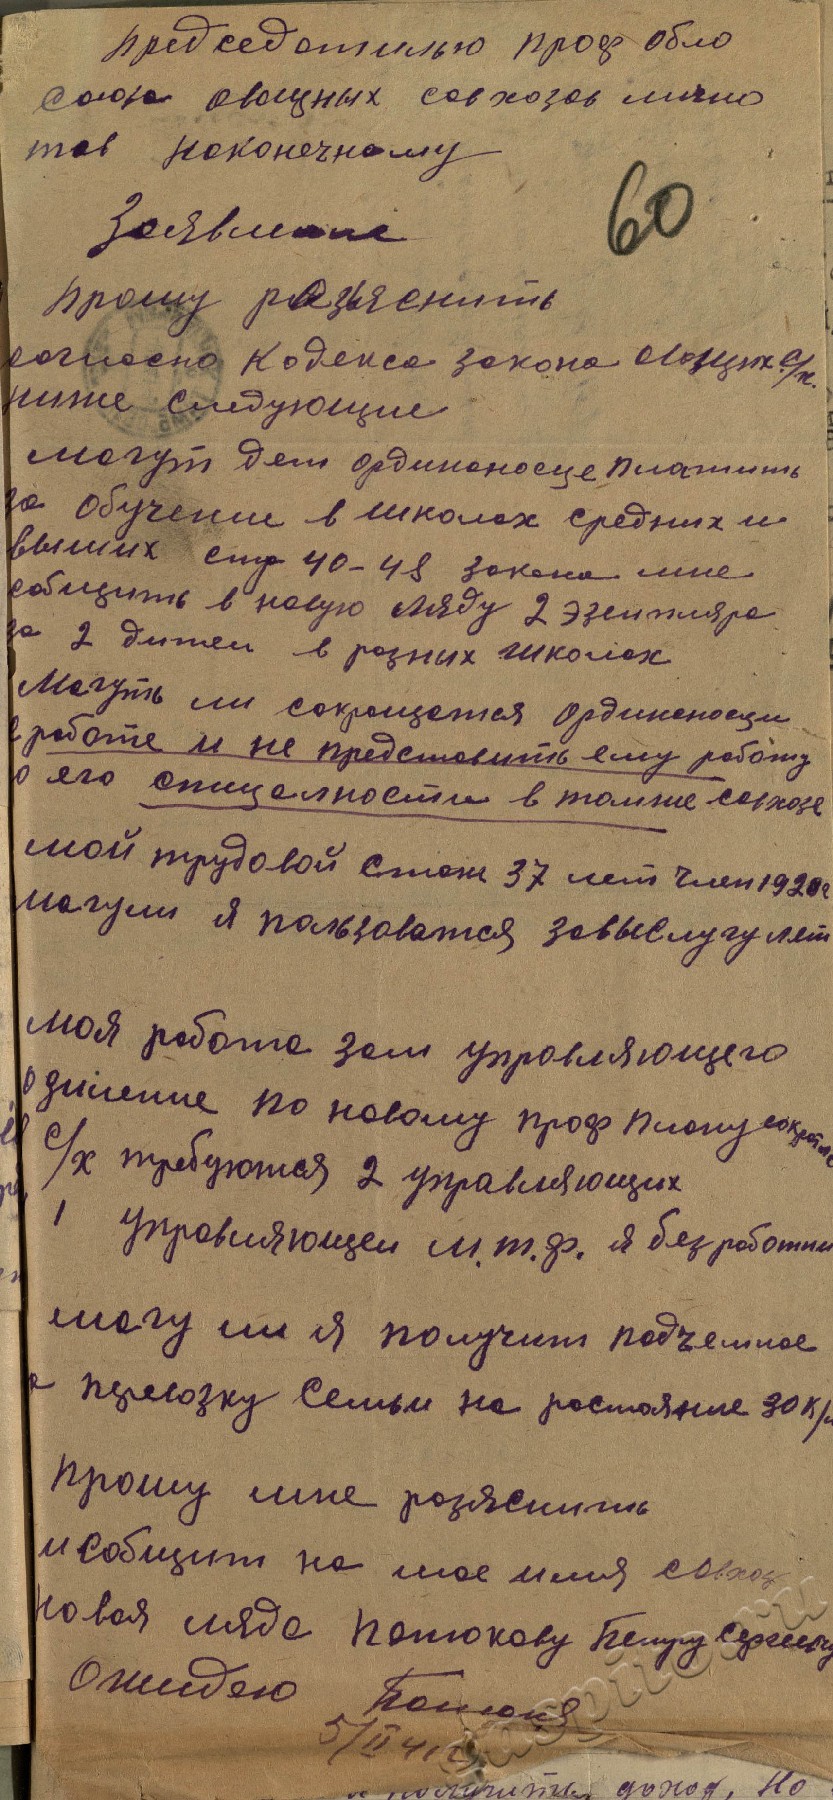 председотилью проф обло
Союза овощных совхозов лично
тов Наконечному
60
Заявление
Прошу разъяснить
согласно Кодекса закона овощих с/х.
ниже следующие
могут дети ординоносце платить
за обучение в школах средних и
высших стр 40-48 закона мне
собщить в новую Ляду 2 эземпляра
за 2 дитей в розных школах
Могуть ли сокращатся ординоносци
в работе и не предстовить ему роботу
по его специалности в томже совхозе
мой трудовой стаж 37 лет член 1920г
могули я пользоватся завыслугу лет
моя робота зам управляющего
одиление по новому проф плану
с/х требуются 2 управляющих
1 управляющей м.т.ф. я без работы
могу ли я получит подъемное
перевозку семьи на ростояние 30 к/м
Прошу мне розяснить
и собщит на мое имя совхоз
новоя ляда Потюкову Петру Сергеевичу
Ожидаю
5/II 41г
получить доход, но
suspitof.ru